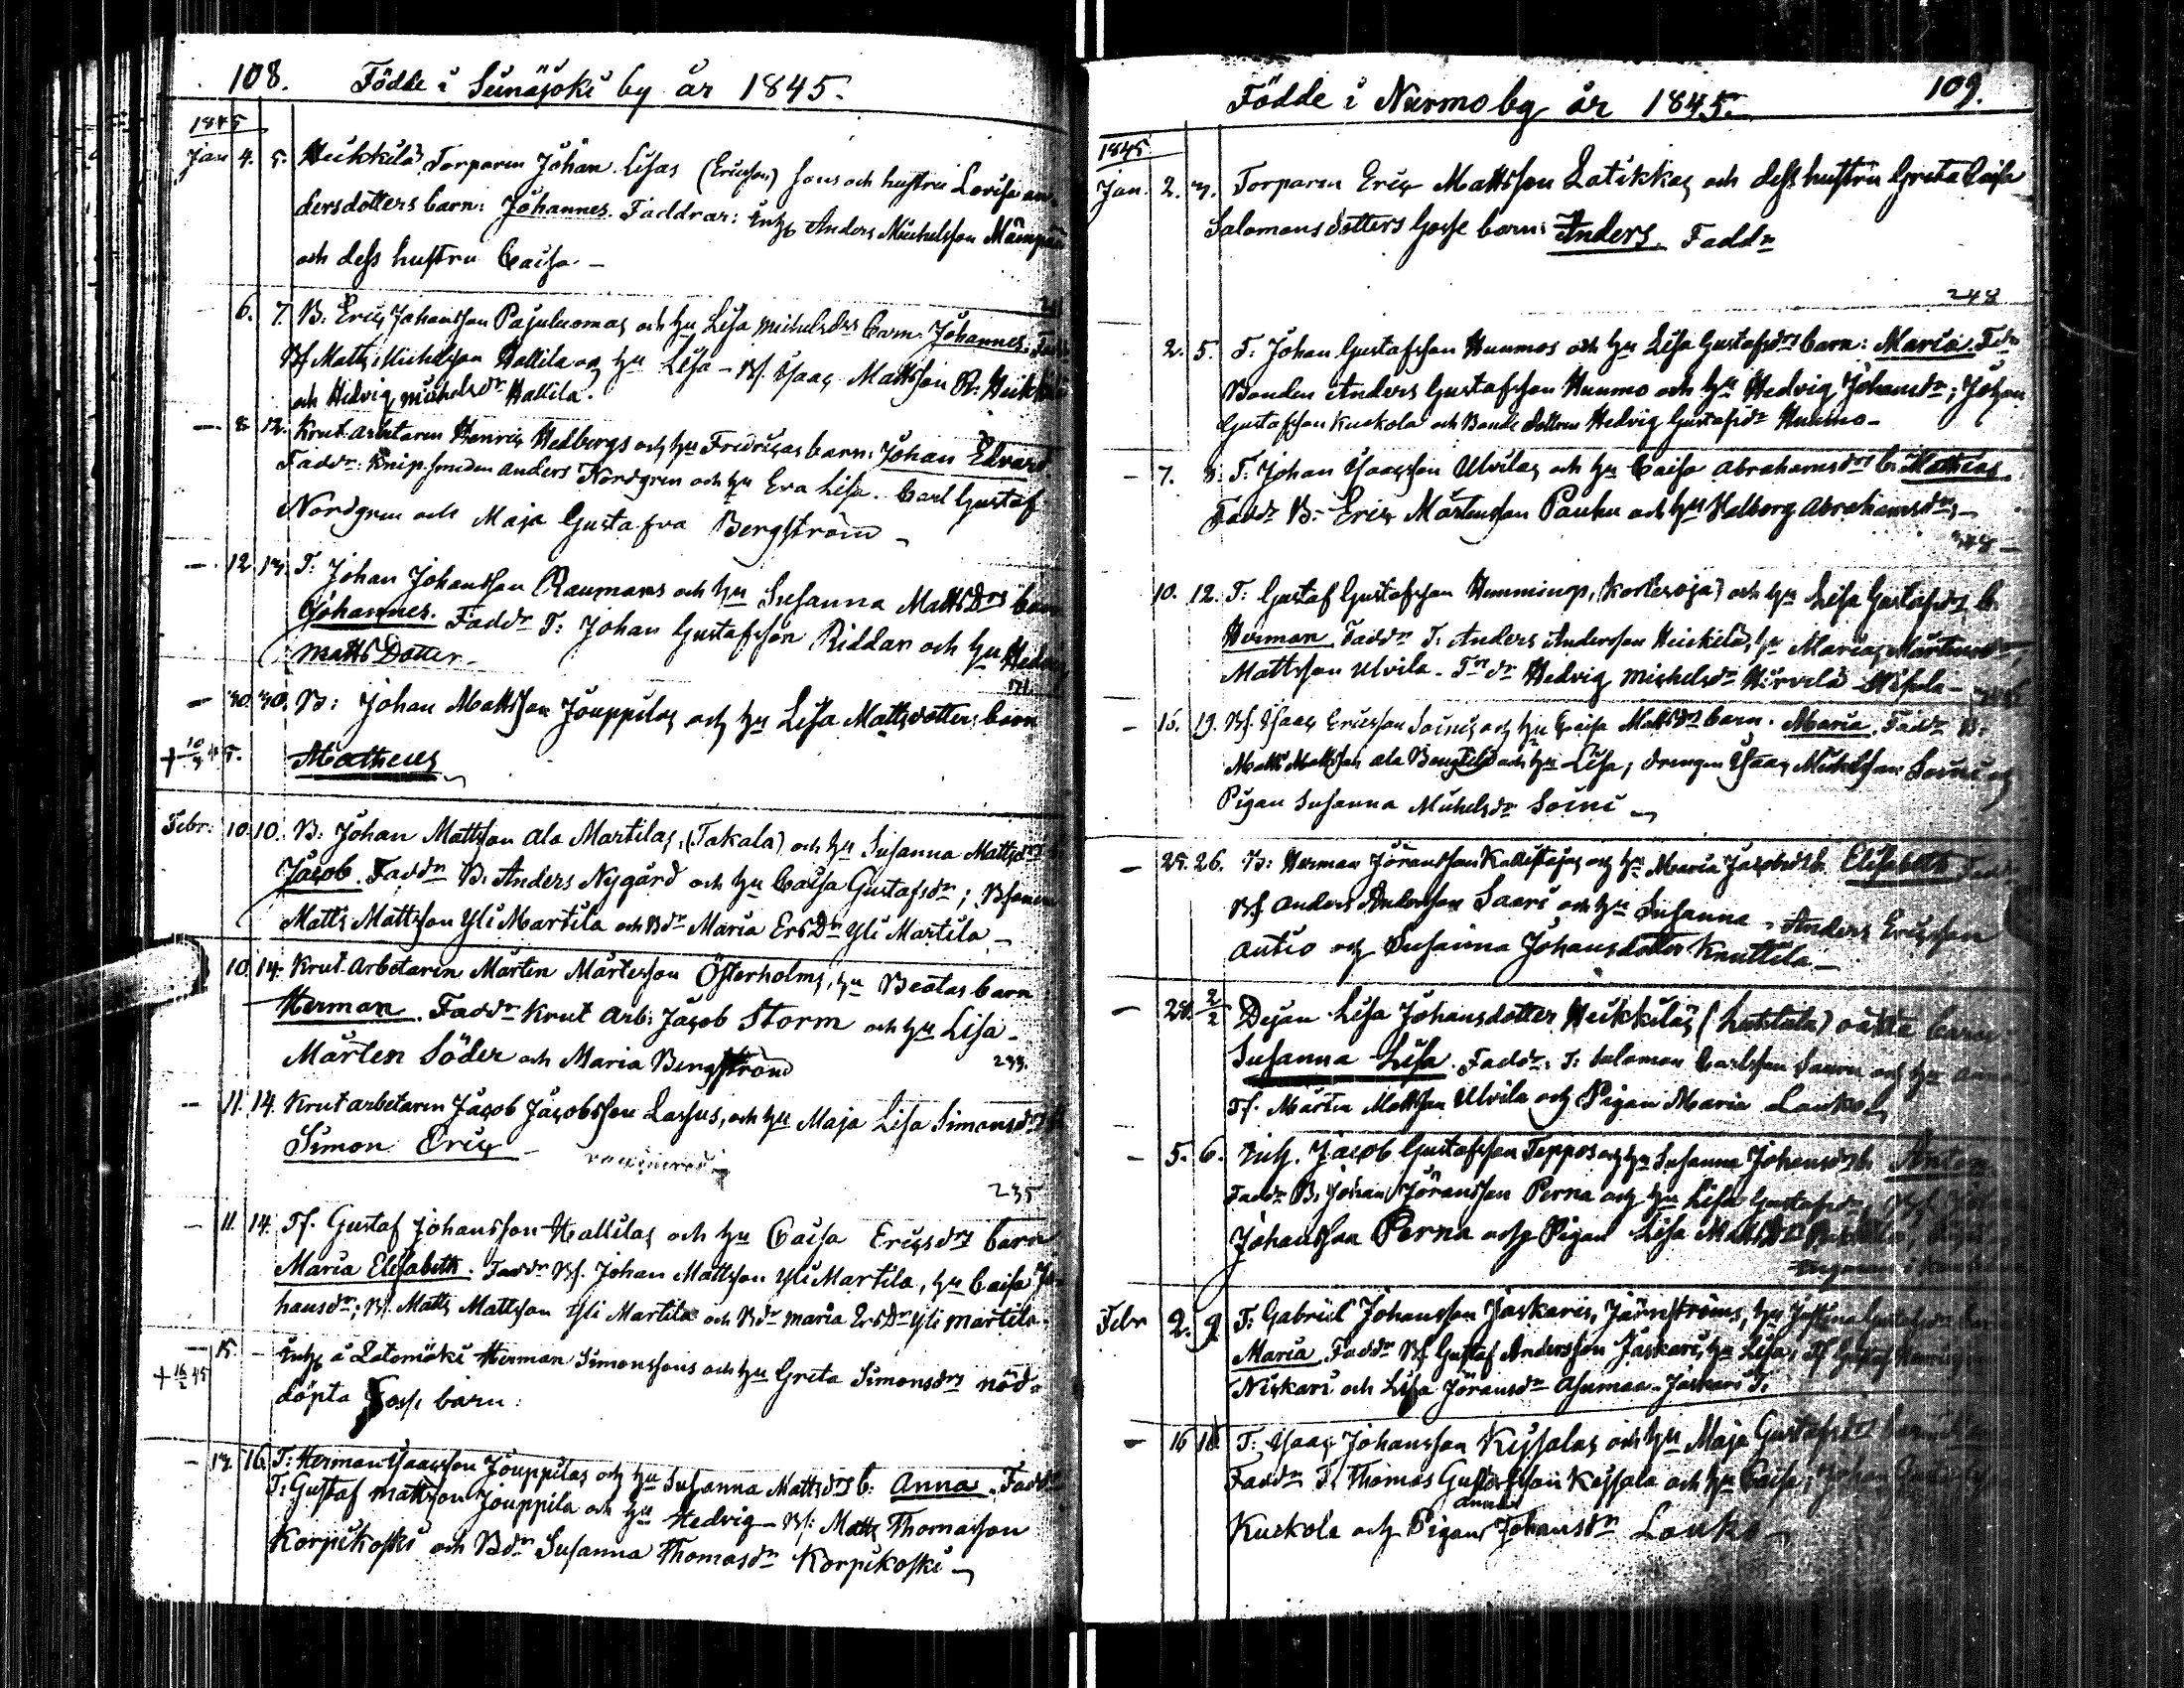 108. Födde i Seinäjoki by år 1845.
1845
Jan 4. 5. Heikkilä Torparen Johan Lisas (Ericsson) sons och hustru Lovisa An-
dersdotters barn: Johannes. Faddrar: Inh. Anders Michelsson Mämpää
och dess hustru Caisa –
6. 7. B. Eric Johansson Pajuluomas och hu Lisa Michelsdrs barn Johannes.
Bs Matts Michelsson Hallila och hu Lisa – Bs. Isaac Mattsson R. Heikkilä
och Hedvig Michelsdr Hallila.
– 8 12. Krut.arbetaren Henric Hedbergs och hu Fredricas barn: Johan Edvard
Faddr: Knipsmeden Anders Nordgren och hu Eva Lisa. Carl Gustaf
Nordgren och Maja Gustafva Bergström –
– 12 13. T: Johan Johansson Raumans och hu Susanna MattsDrs barn
Johannes. Faddr T: Johan Gustafsson Riddar och hu Hedvig
Matts Dotter –
– 30. 30. B: Johan Mattsson Jouppilas och hu Lisa Mattsdotters barn
+ 10/3 45. Matheus
Febr: 10. 10. B. Johan Mattsson Ala Martilas, (Takala) och hu Susanna Mattsdrs
Jacob. Faddr B. Anders Nygård och hu Caisa Gustafsdr; Bsonen
Matts Mattsson Yli Martila och Bdr Maria ErsDr Yli Martila –
10. 14. Krut.Arbetaren Mårten Mårtensson Österholms, hu Beatas barn
Herman. Faddr Krut Arb: Jacob Storm och hu Lisa –
Mårten Söder och Maria Bergström 233.
– 11. 14. Krutarbetaren Jacob Jacobsson Lassus, och hu Maja Lisa Simonsdrs
Simon Eric –
235
– 11. 14. Ts. Gustaf Johansson Hallilas och hu Caisa Ericsdrs barn
Maria Elisabeth. Faddr Bs. Johan Mattsson Yli Martila, hu Caisa Jo-
hansdr; Bs. Matts Mattsson Yli Martila och Bdr Maria ErsDr Yli Martila.
– 15. – Inh. å Latomäki Herman Simonssons och hu Greta Simonsdrs nöd-
+ 16/2 45 döpta Gosse barn:
– 13. 16. T: Herman Isaacsson Jouppilas och hu Susanna Mattsdrs b: Anna. Faddr
T: Gustaf Mattsson Jouppila och hu Hedvig – Bs: Matts Thomasson
Korpikoski och Bdr Susanna Thomasdr Korpikoski –
Födde i Nurmo by år 1845. 109.
1845
Jan. 2. 3. Torparen Eric Mattsson Latikkas och dess hustru Greta Caisa
Salomonsdotters Gosse barn: Anders. Faddr
248
2. 5. T: Johan Gustafsson Huumos och hu Lisa Gustafsdrs barn: Maria. Fdr
Bonden Anders Gustafsson Huumo och hu Hedvig Johansdr; Johan
Gustafsson Kuckola och Bonde dottren Hedvig Gustafsdr Huumo –
– 7. 8. T: Johan Isaacsson Ulvilas och hu Caisa Abrahamsdrs b. Mathias.
Faddr B: Eric Mårtensson Pauhu och hu Valborg Abrahamsdr –
248 –
10. 12. T: Gustaf Gustafsson Hemmings, (Kortesoja) och hu Lisa Gustafsdrs b.
Herman. Faddr T. Anders Andersson Heickilä, hu Maria Mårtensdr,
Mattsson Ulvila – Tr dr Hedvig Michelsdr Hirvelä
– 15. 19. Bs. Isaac Ericsson Soinis och hu Caisa Mattsdrs barn. Maria. Faddr B:
Matts Mattsson Ala Bengtilä och hu Lisa; drengen Isaac Michelsson Soini och
Pigan Susanna Michelsdr Soini –
– 25. 26. B: Herman Jöransson Kallistajas och hu Maria Jacobsdrs b. Elisabeth Faddr
Bs Anders Andersson Saari och hu Susanna – Anders Ericsson
Autio och Susanna Johansdotter Knuttila –
– 28. 2/2 Dejan Lisa Johansdotter Heikkiläs oäkta barn
Susanna Lisa. Faddr. T: Salomon Carlsson Saura och hu Anna
Ts. Mårten Mattsson Ulvila och Pigan Maria Lauko
– 5. 6. Inh. Jacob Gustafsson Teppos och hu Susanna Johansdrs b. Anton
Faddr B. Johan Jöransson Perna och hu Lisa Gustafsdr,
Johansson Perna och Pigan Lisa MattsDr
Febr 2. 9 T: Gabriel Johansson Jaskaris, Järnströms, hu Justina Gustafsdrs
Maria. Faddr Bs Gustaf Andersson Jaskari, hu Lisa; Ts Gustaf
Niskari och Lisa Jöransdr Asumaa – Jaskari T.
– 16 18. T: Isaac Johansson Kessalas och hu Maja Gustafsdrs
Faddr T. Thomas Gustafsson Kessala och hu Caisa; Johan
Kuckola och Pigan Anna Johansdr Louko –